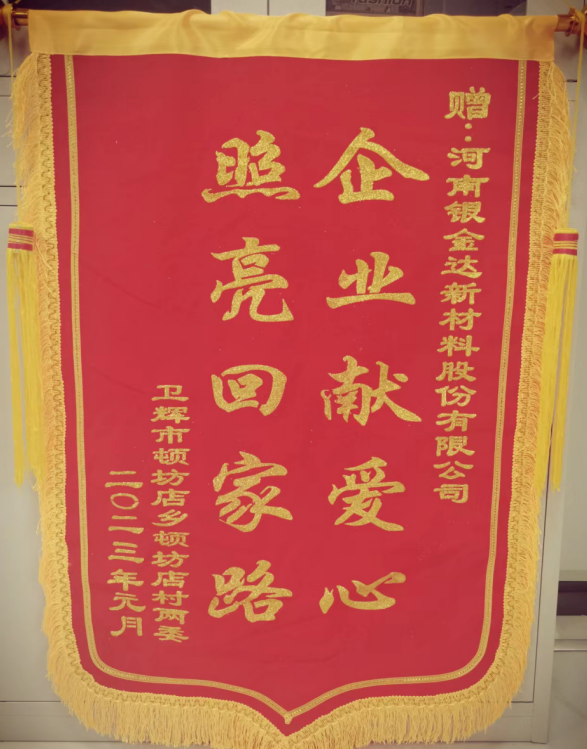 赠：河南银金达新材料股份有限公司
企业献爱心
照亮回家路
卫辉市顿坊店乡顿坊店村两委
二〇二三年元月